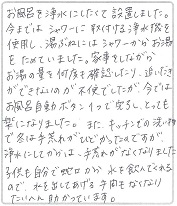 お風呂を浄水にしたくて設置しました。
今まではシャワーに取り付ける浄水器を
使用し、湯ぶねにはシャワーからお湯
をためていました。家事をしながら
お湯の量を何度も確認したり、追いだき
ができないのが不便でしたが、今では
お風呂自動ボタン1つで完了し、とっても
楽になりました。また、キッチンでの洗い物
で冬は手荒れがひどかったのですが、
浄水にしてからは、手荒れがなくなりました。
子供も自分で蛇口から水を飲んでくれる
ので、水を出してあげる手間もなくなり
たいへん助かっています。